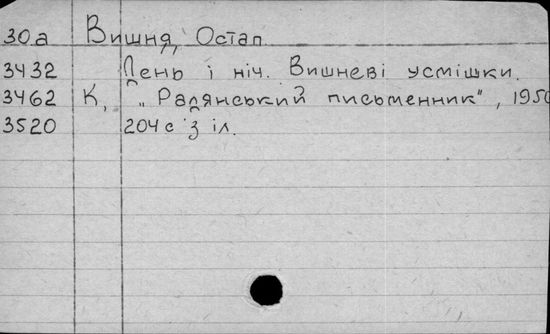 30.а Вишня, Остап.
3432 День і ніч. Вишневі усмішки.
3462 К, „Радянський письменник", 1950
3520 204с з іл.